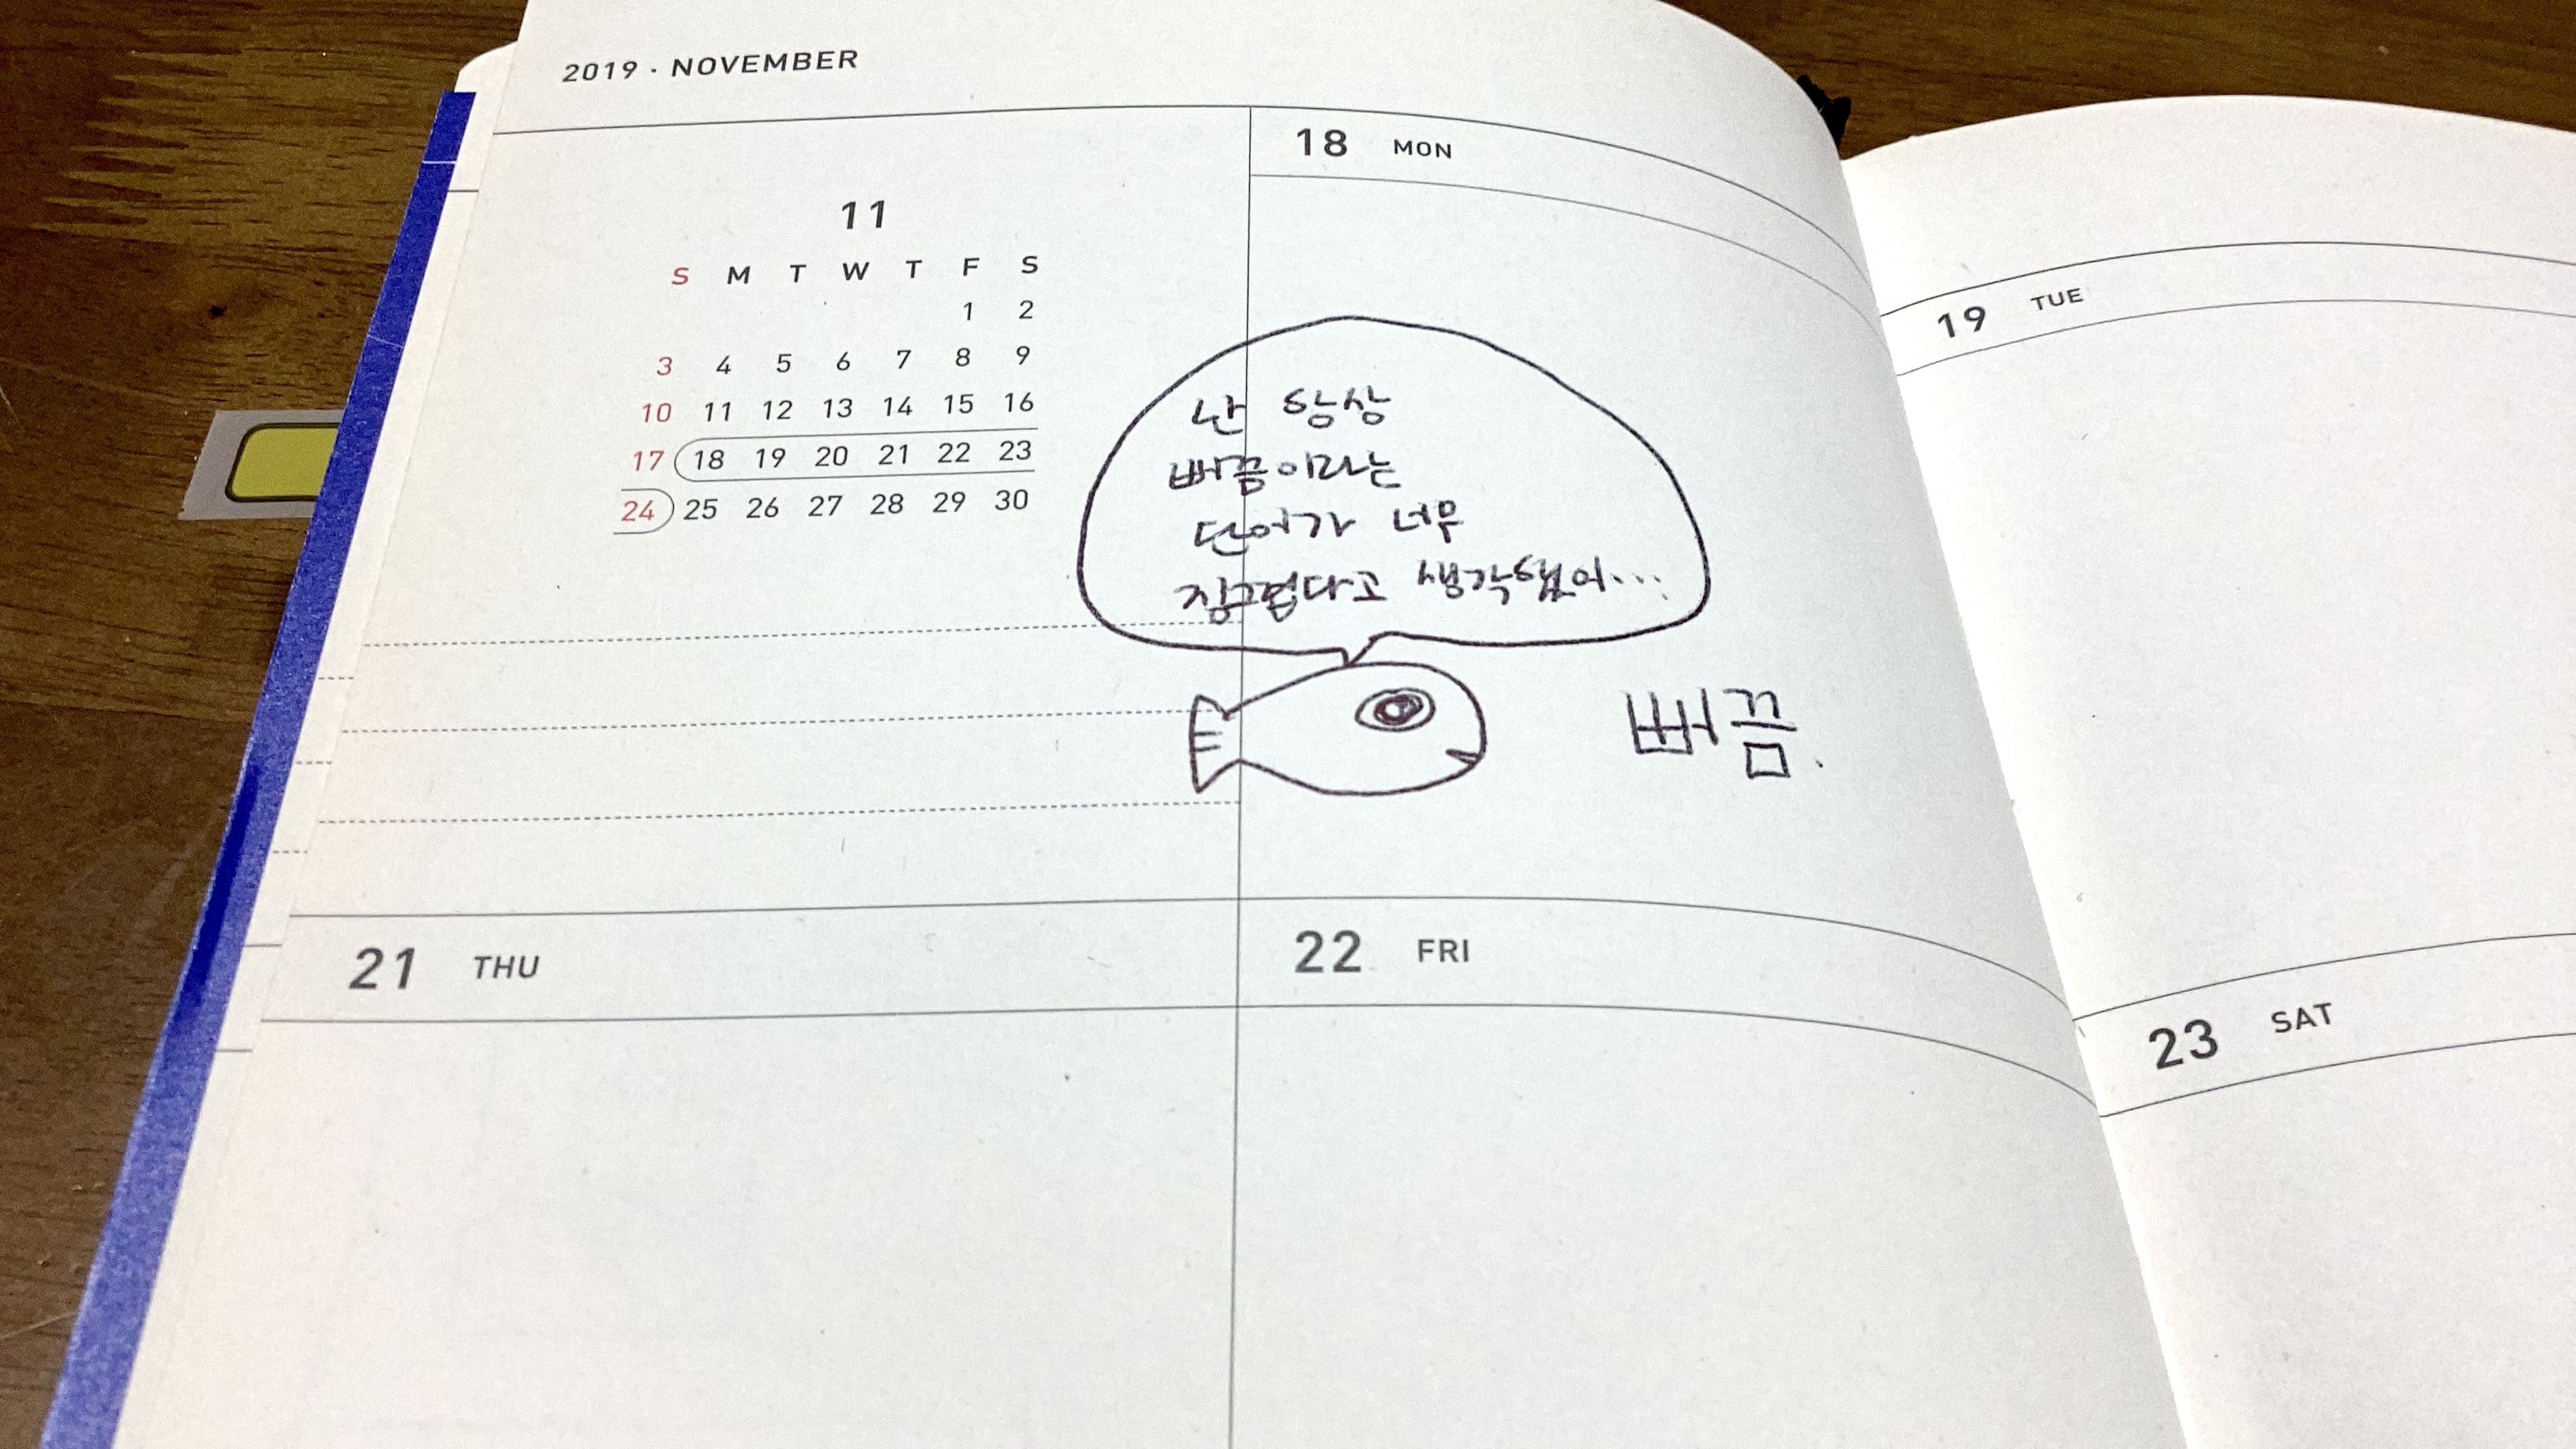 2019 · NOVEMBER
11
S M T W T F S
1 2
3 4 5 6 7 8 9
10 11 12 13 14 15 16
17 18 19 20 21 22 23
24 25 26 27 28 29 30
18 MON
난 항상
뻐끔이라는
단어가 너무
징그럽다고 생각했어...
뻐끔.
19 TUE
21 THU
22 FRI
23 SAT